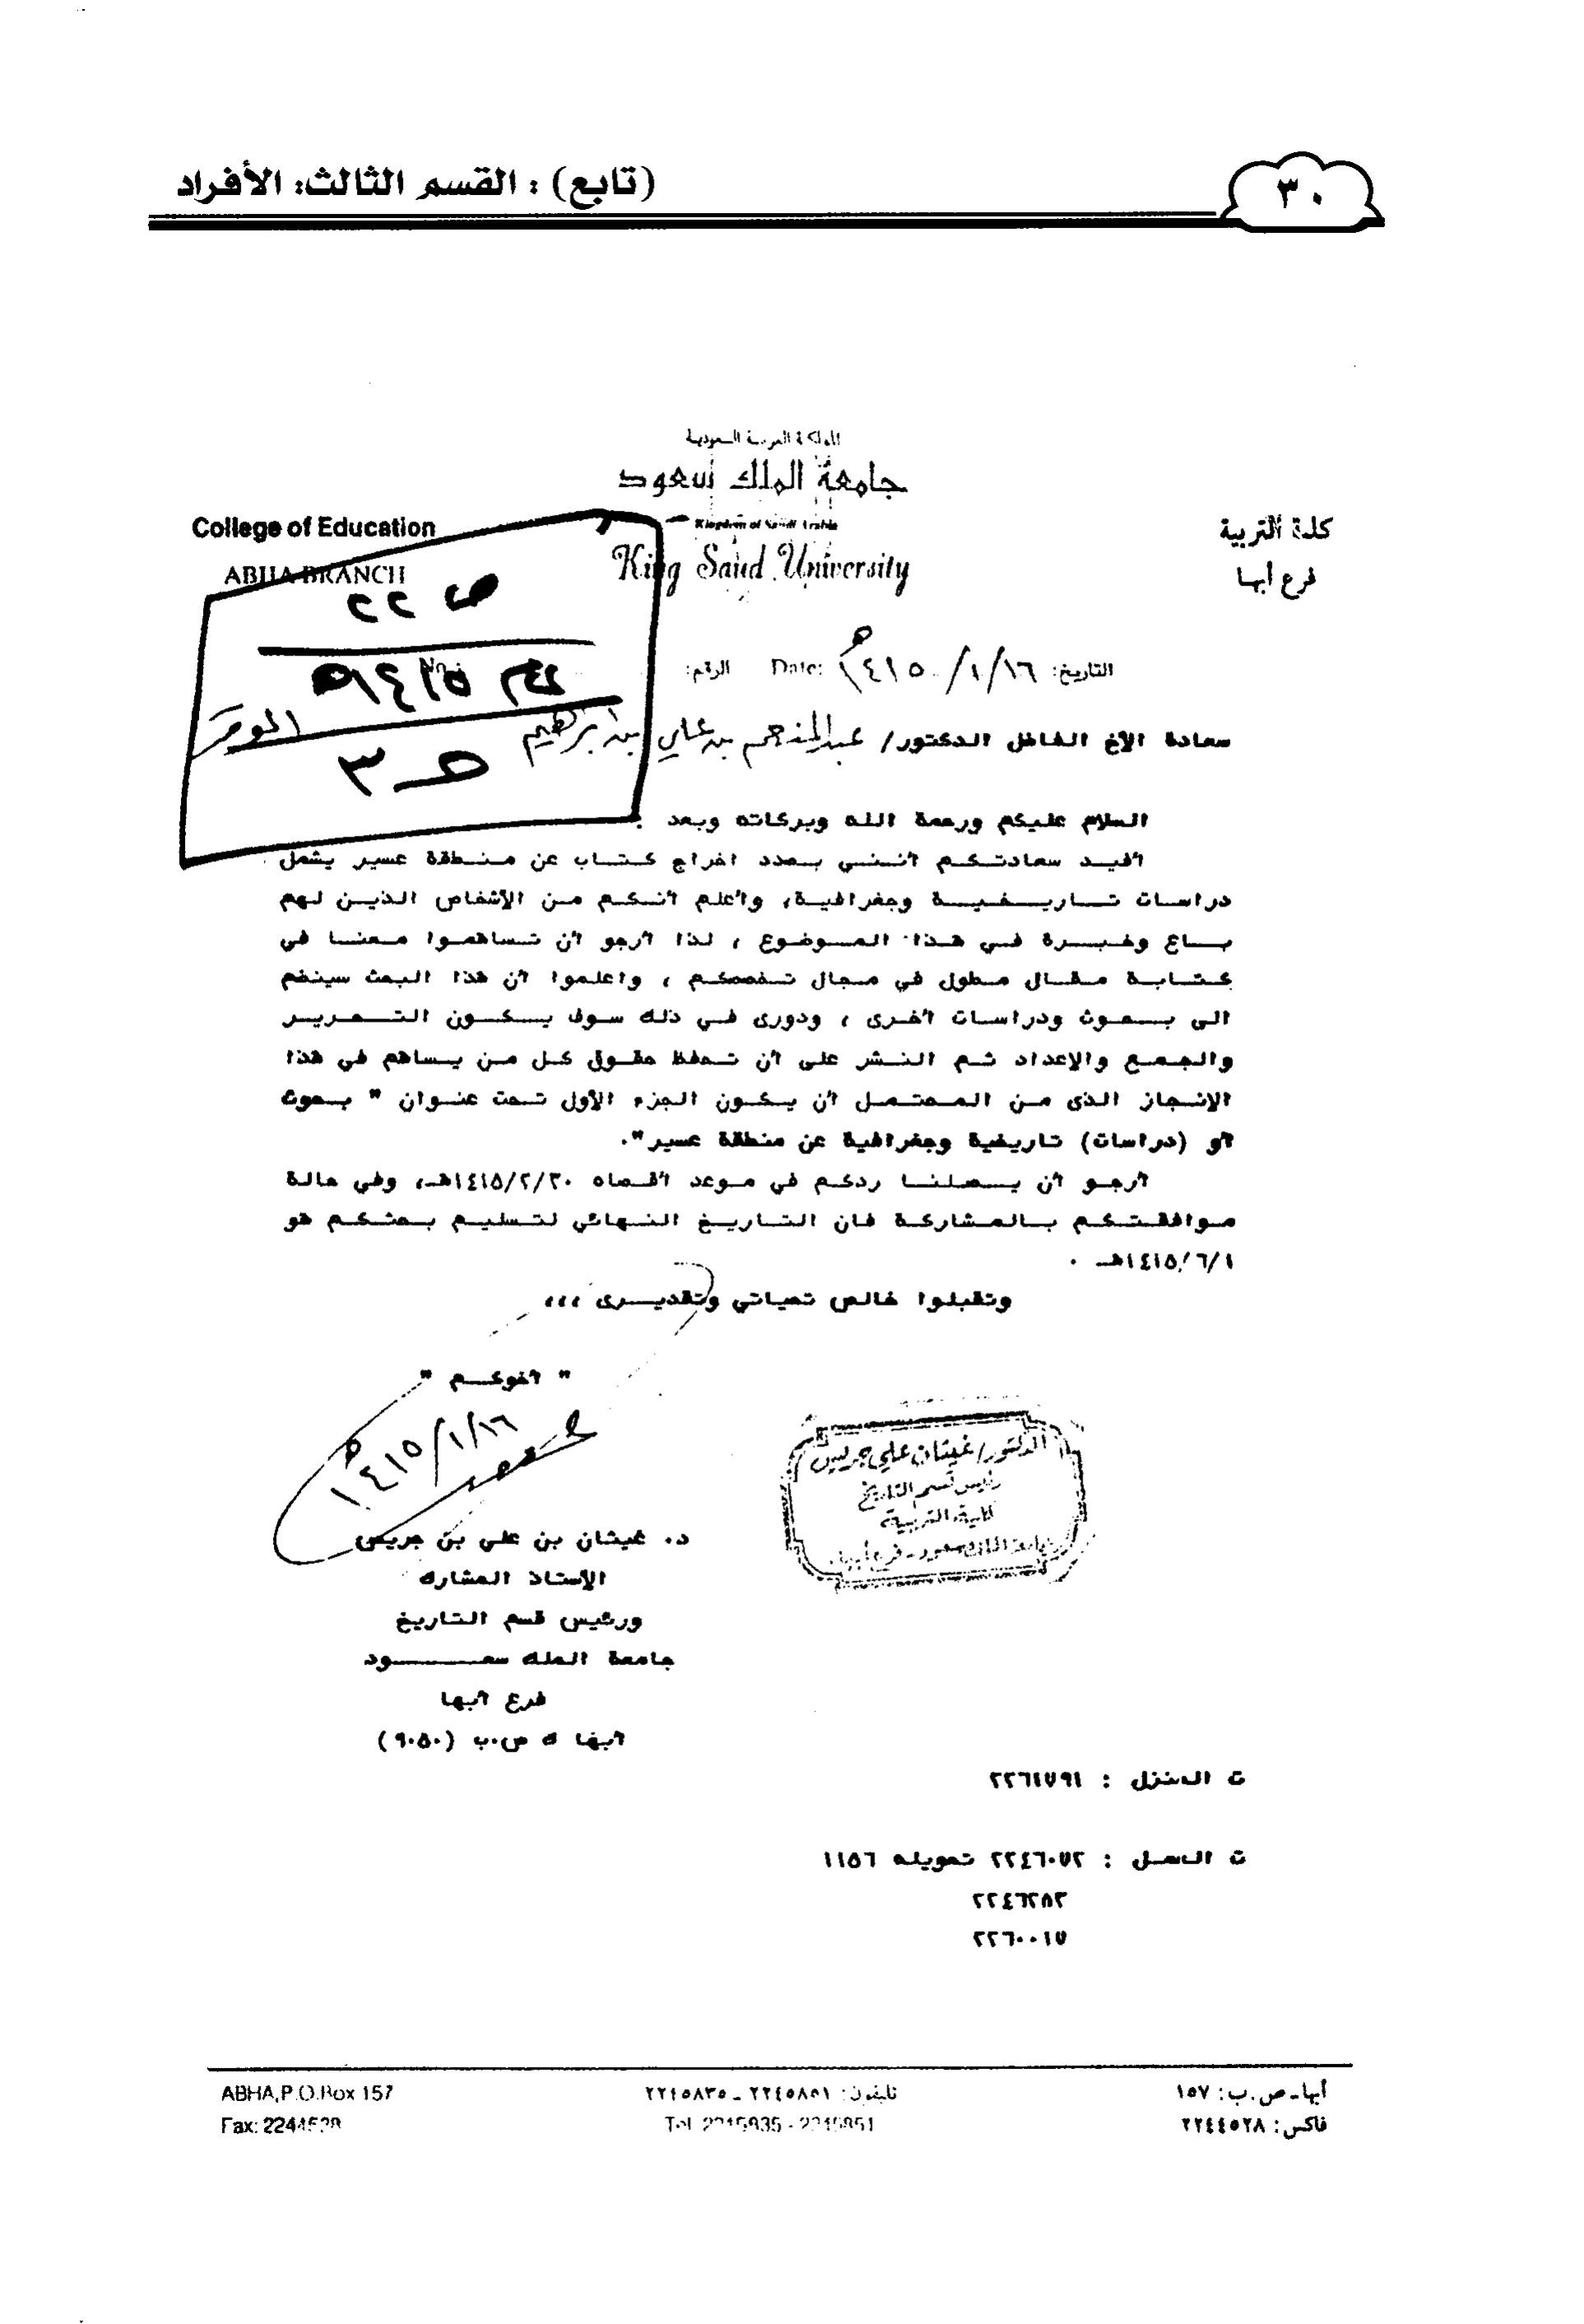 ٣٠
(تابع) : القسم الثالث: الأفراد
المملكة العربية السعودية
جامعة الملك سعود
Kingdom of Saudi Arabia
King Saud University
كلية التربية
فرع أبها
College of Education
ABHA BRANCH
ص ٢٢
١٤١٥هـ
ص ٣
التاريخ: ١٤١٥/١/١٦هـ Date: الرقم: No.
سعادة الأخ الفاضل الدكتور/ عبدالمنعم بن علي بن إبراهيم الموقر
السلام عليكم ورحمة الله وبركاته وبعد :
أفيد سعادتكم أنني بصدد اخراج كتاب عن منطقة عسير يشمل
دراسات تاريخية وجغرافية، وأعلم أنكم من الأشخاص الذين لهم
باع وخبرة في هذا الموضوع ، لذا أرجو أن تساهموا معنا في
كتابة مقال مطول في مجال تخصصكم ، واعلموا أن هذا البحث سينضم
الى بحوث ودراسات أخرى ، ودورى في ذلك سوف يكون التحرير
والجمع والإعداد ثم النشر على أن تحفظ حقوق كل من يساهم في هذا
الإنجاز الذى من المحتمل أن يكون الجزء الأول تحت عنوان " بحوث
أو (دراسات) تاريخية وجغرافية عن منطقة عسير".
أرجو أن يصلنا ردكم في موعد أقصاه ١٤١٥/٢/٣٠هـ، وفي حالة
موافقتكم بالمشاركة فان التاريخ النهائي لتسليم بحثكم هو
١٤١٥/٦/١هـ .
وتقبلوا خالص تحياتي وتقديرى ،،،
" أخوكم "
١٤١٥/١/١٦هـ
د. غيثان بن علي بن جريس
الأستاذ المشارك
ورئيس قسم التاريخ
جامعة الملك سعود
فرع أبها
أبها ك ص.ب (٩٠٥٠)
الدكتور/ غيثان علي جريس
رئيس قسم التاريخ
كلية التربية
جامعة الملك سعود - فرع أبها
ت المنزل : ٢٢٦١٧٩١
ت العمل : ٢٢٤٦٠٧٢ تحويله ١١٥٦
٢٢٤٦٢٨٣
٢٢٦٠٠١٧
أبها - ص.ب: ١٥٧
فاكس: ٢٢٤٤٥٢٨
تليفون: ٢٢٤٥٨٥١ - ٢٢٤٥٨٣٥
Tel. 2245835 - 2245851
ABHA, P.O.Box 157
Fax: 2244528